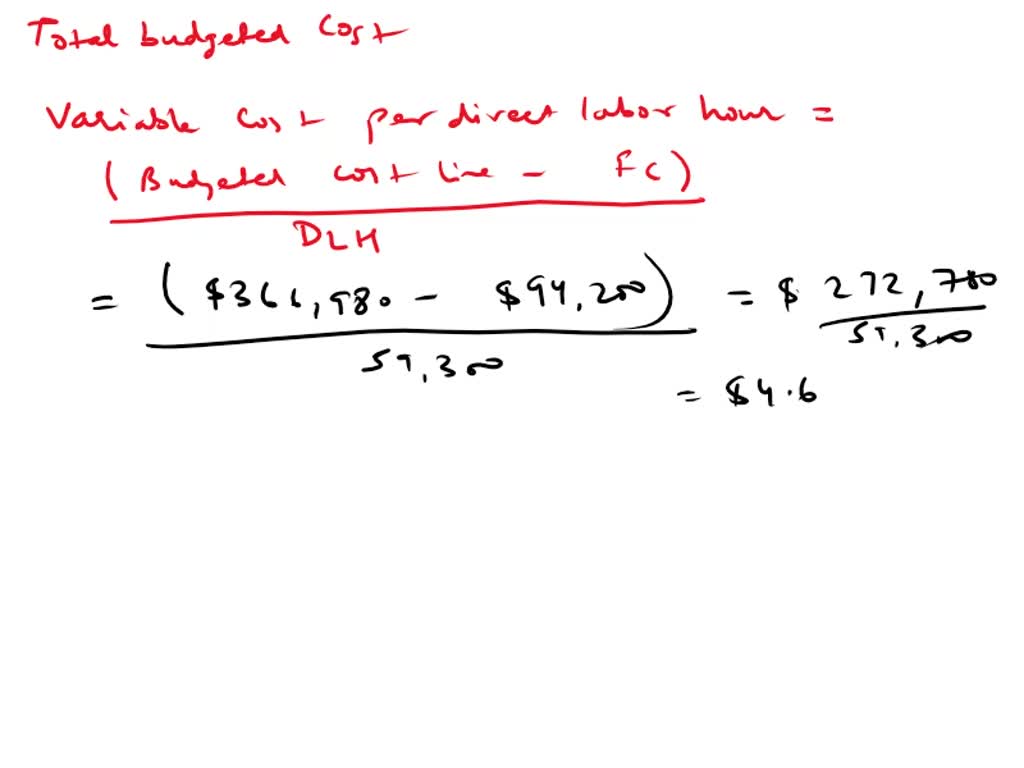 Total budgeted Cost
Variable Cost per direct labor hour =
(Budgeted cost line - FC)
DLH
= ($366,980 - $94,200) = $272,780
59,300 59,300
= $4.6